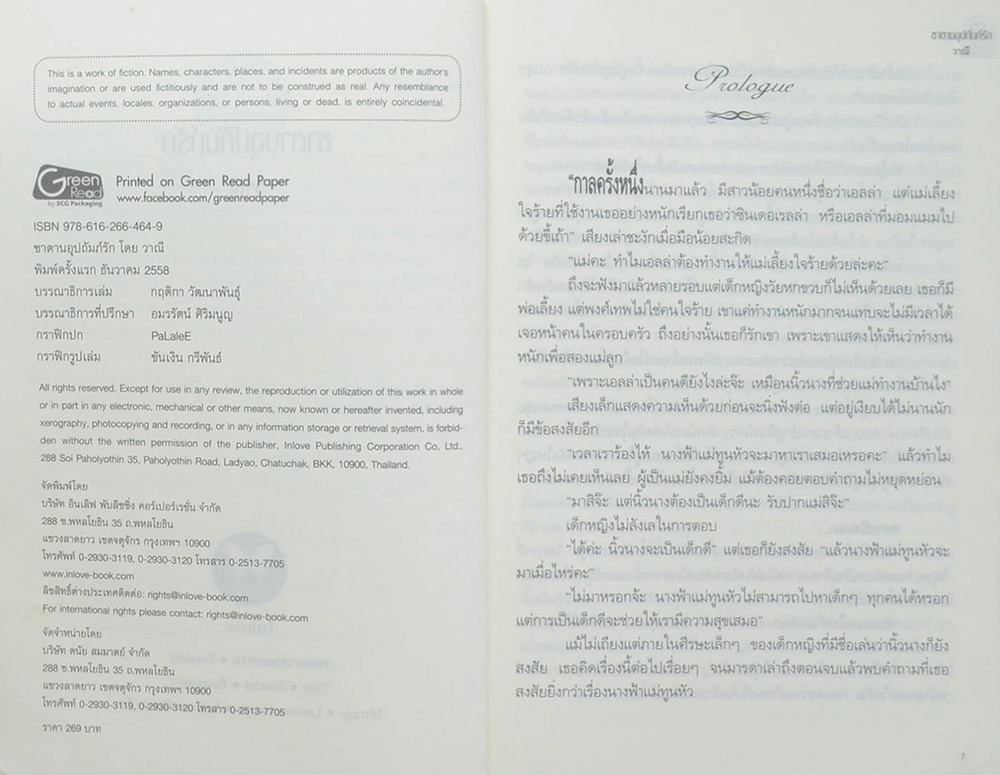 This is a work of fiction. Names, characters, places, and incidents are products of the authors
imagination or are used fictitiously and are not to be construed as real. Any resemblance
to actual events, locales, organizations, or persons, living or dead, is entirely coincidental.
Green
Read
by SCG Packaging
Printed on Green Read Paper
www.facebook.com/greenreadpaper
ISBN 978-616-266-464-9
ซาตานอุปถัมภ์รัก โดย วาณี
พิมพ์ครั้งแรก ธันวาคม 2558
บรรณาธิการเล่ม กฤติกา วัฒนาพันธุ์
บรรณาธิการที่ปรึกษา อมรรัตน์ ศิริมนูญ
กราฟิกปก PaLaleE
กราฟิกรูปเล่ม ขันเงิน กรีพันธ์
All rights reserved. Except for use in any review, the reproduction or utilization of this work in whole
or in part in any electronic, mechanical or other means, now known or hereafter invented, including
xerography, photocopying and recording, or in any information storage or retrieval system, is forbid-
den without the written permission of the publisher, Inlove Publishing Corporation Co, Ltd.,
288 Soi Paholyothin 35, Paholyothin Road, Ladyao, Chatuchak, BKK, 10900, Thailand.
จัดพิมพ์โดย
บริษัท อินเลิฟ พับลิชชิ่ง คอร์เปอร์เรชั่น จำกัด
288 ซ.พหลโยธิน 35 ถ.พหลโยธิน
แขวงลาดยาว เขตจตุจักร กรุงเทพฯ 10900
โทรศัพท์ 0-2930-3119, 0-2930-3120 โทรสาร 0-2513-7705
www.inlove-book.com
ลิขสิทธิ์ต่างประเทศติดต่อ: rights@inlove-book.com
For international rights please contact: rights@inlove-book.com
จัดจำหน่ายโดย
บริษัท ดนัย สมมาตย์ จำกัด
288 ซ.พหลโยธิน 35 ถ.พหลโยธิน
แขวงลาดยาว เขตจตุจักร กรุงเทพฯ 10900
โทรศัพท์ 0-2930-3119, 0-2930-3120 โทรสาร 0-2513-7705
ราคา 269 บาท
ซาตานอุปถัมภ์รัก
วาณี
Prologue
“กาลครั้งหนึ่งนานมาแล้ว มีสาวน้อยคนหนึ่งชื่อว่าเอลล่า แต่แม่เลี้ยง
ใจร้ายที่ใช้งานเธออย่างหนักเรียกเธอว่าซินเดอเรลล่า หรือเอลล่าที่มอมแมมไป
ด้วยขี้เถ้า” เสียงเล่าชะงักเมื่อมือน้อยสะกิด
“แม่คะ ทำไมเอลล่าต้องทำงานให้แม่เลี้ยงใจร้ายด้วยล่ะคะ”
ถึงจะฟังมาแล้วหลายรอบแต่เด็กหญิงวัยหกขวบก็ไม่เห็นด้วยเลย เธอก็มี
พ่อเลี้ยง แต่พงศ์เทพไม่ใช่คนใจร้าย เขาแค่ทำงานหนักมากจนแทบจะไม่มีเวลาได้
เจอหน้าคนในครอบครัว ถึงอย่างนั้นเธอก็รักเขา เพราะเขาแสดงให้เห็นว่าทำงาน
หนักเพื่อสองแม่ลูก
“เพราะเอลล่าเป็นคนดียังไงล่ะจ๊ะ เหมือนนิ้วนางที่ช่วยแม่ทำงานบ้านไง”
เสียงเล็กแสดงความเห็นด้วยก่อนจะนิ่งฟังต่อ แต่อยู่เงียบได้ไม่นานนัก
ก็มีข้อสงสัยอีก
“เวลาเราร้องไห้ นางฟ้าแม่ทูนหัวจะมาหาเราเสมอเหรอคะ” แล้วทำไม
เธอถึงไม่เคยเห็นเลย ผู้เป็นแม่ยังคงยิ้ม แม้ต้องคอยตอบคำถามไม่หยุดหย่อน
“มาสิจ๊ะ แต่นิ้วนางต้องเป็นเด็กดีนะ รับปากแม่สิจ๊ะ”
เด็กหญิงไม่ลังเลในการตอบ
“ได้ค่ะ นิ้วนางจะเป็นเด็กดี” แต่เธอก็ยังสงสัย “แล้วนางฟ้าแม่ทูนหัวจะ
มาเมื่อไหร่คะ”
“ไม่มาหรอกจ้ะ นางฟ้าแม่ทูนหัวไม่สามารถไปหาเด็กๆ ทุกคนได้หรอก
แต่การเป็นเด็กดีจะช่วยให้เรามีความสุขเสมอ”
แม้ไม่เถียงแต่ภายในศีรษะเล็กๆ ของเด็กหญิงที่มีชื่อเล่นว่านิ้วนางก็ยัง
สงสัย เธอคิดเรื่องนี้ต่อไปเรื่อยๆ จนมารดาเล่าถึงตอนจบแล้วพบคำถามที่เธอ
สงสัยยิ่งกว่าเรื่องนางฟ้าแม่ทูนหัว
7